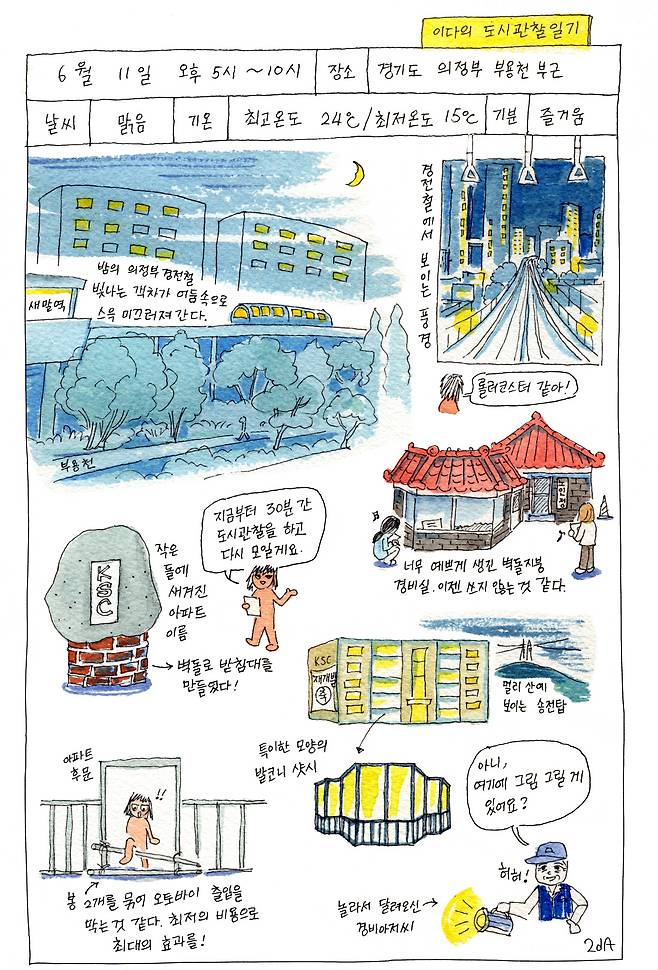 이다의 도시관찰일기
6월 11일 오후 5시~10시 장소 경기도 의정부 부용천 부근
날씨 맑음 기온 최고온도 24℃/최저온도 15℃ 기분 즐거움
밤의 의정부 경전철
빛나는 객차가 어둠속으로
스윽 미끄러져 간다.
새말역
부용천
경전철에서 보이는 풍경
롤러코스터 같아!
노인정
너무 예쁘게 생긴 벽돌지붕
경비실. 이젠 쓰지 않는 것 같다.
지금부터 30분간
도시관찰을 하고
다시 모일게요.
KSC
작은
돌에
새겨진
아파트
이름
벽돌로 받침대를
만들었다!
KSC
재개발
축
멀리 산에
보이는 송전탑
특이한 모양의
발코니 샷시
아파트
후문
!!
봉 2개를 묶어 오토바이 출입을
막는 것 같다. 최저의 비용으로
최대의 효과를!
아니,
여기에 그림 그릴 게
있어요?
허허!
놀라서 달려오신
경비아저씨
2dA